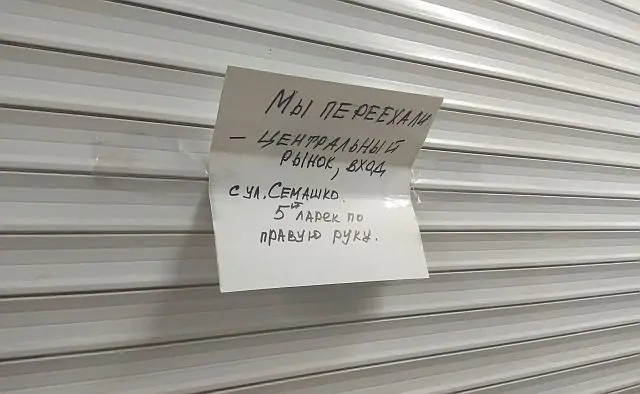 Мы ПЕРЕЕХАЛИ
– ЦЕНТРАЛЬНЫЙ
РЫНОК, ВХОД
С УЛ. СЕМАШКО.
5ый ЛАРЕК ПО
ПРАВУЮ РУКУ.